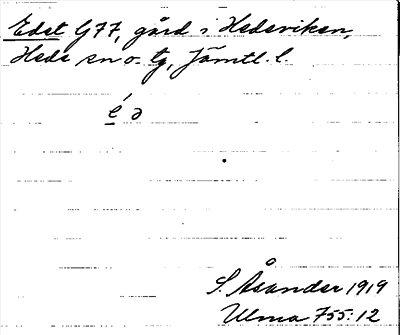 Edet G77, gård i Hedeviken,
Hede sn o. tg, Jämtl. l.
é ə
S. Åsander 1919
Ulma 755:12